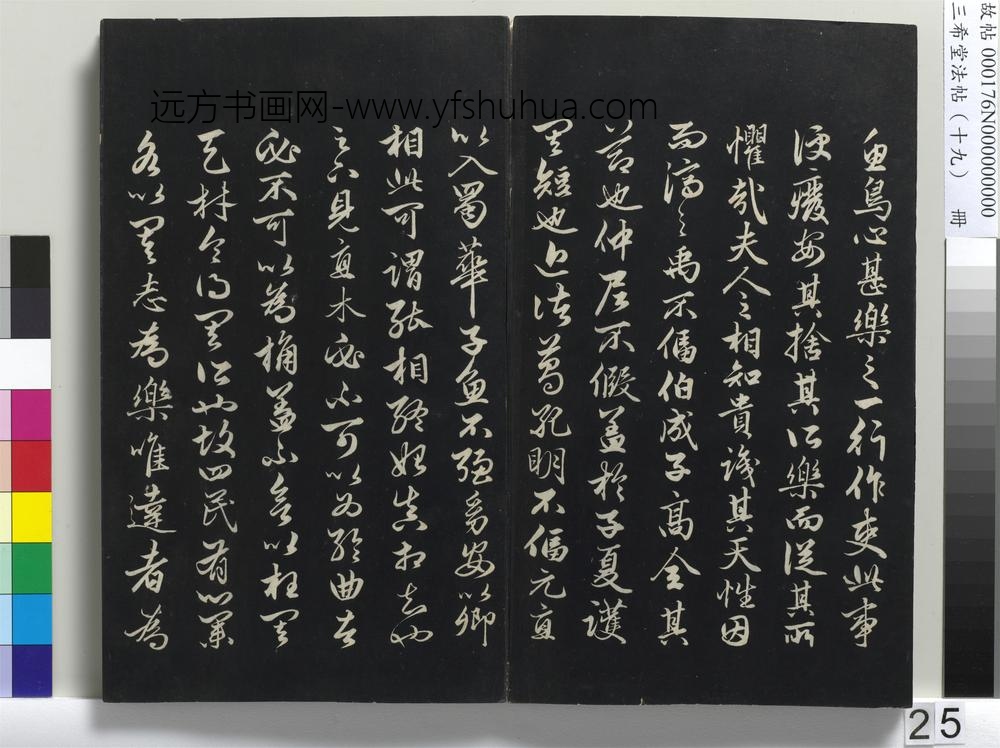 魚鳥心甚樂之一行作吏此事
便廢安其捨其所樂而從其所
懼哉夫人之相知貴識其天性因
而濟之禹不偪伯成子高全其
節也仲尼不假蓋於子夏護
其短也近諸葛孔明不偪元直
以入蜀華子魚不強幼安以卿
相此可謂能相終始真相知也
足下見直木必不可以為輪曲者
必不可以為桷蓋不欲以枉其
天材令得其所也故四民有業
各以得志為樂唯達者為
远方书画网-www.yfshuhua.com
故帖 000176N000000000
三希堂法帖(十九) 冊
25